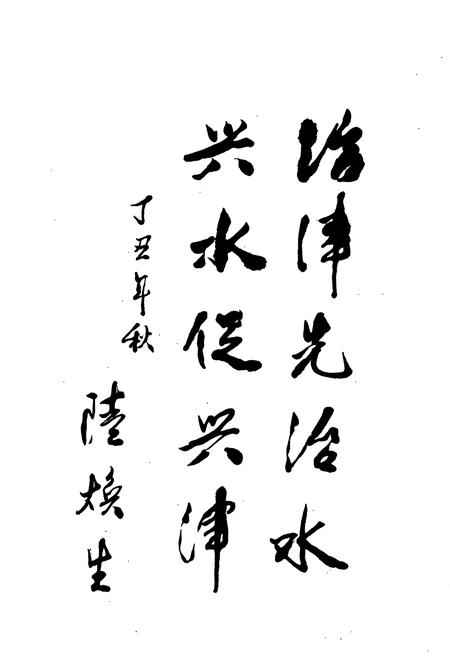 治津先治水
兴水促兴津
丁丑年秋
陸焕生